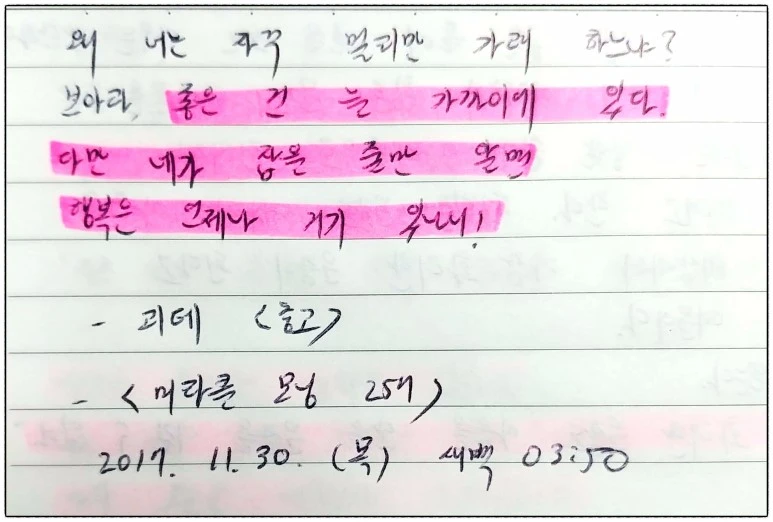 왜 너는 자꾸 멀리만 가려 하느냐?
보아라, 좋은 건 늘 가까이에 있다.
다만 네가 잡을 줄만 알면
행복은 언제나 거기 있나니!
- 괴테 <충고>
- <미라클 모닝 25일>
2017. 11. 30. (목) 새벽 03:50